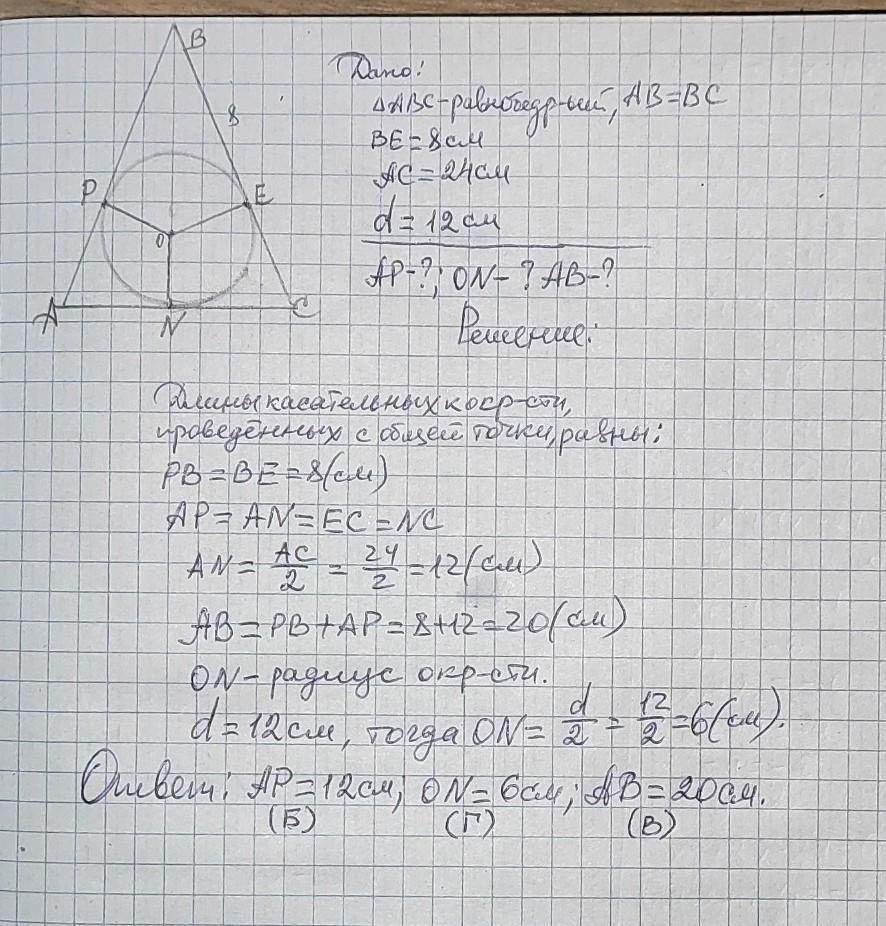 B
Дано:
ΔABC-равнобедр-ый, AB=BC
8
BE=8см
AC=24см
P
E
d=12см
O
AP-?; ON-? AB-?
A
N
C
Решение:
Длины касательных к окр-сти,
проведённых с общей точки, равны:
PB=BE=8(см)
AP=AN=EC=NC
AN=AC/2=24/2=12(см)
AB=PB+AP=8+12=20(см)
ON-радиус окр-сти.
d=12см, тогда ON=d/2=12/2=6(см).
Ответ: AP=12см; ON=6см; AB=20см.
(Б) (Г) (В)